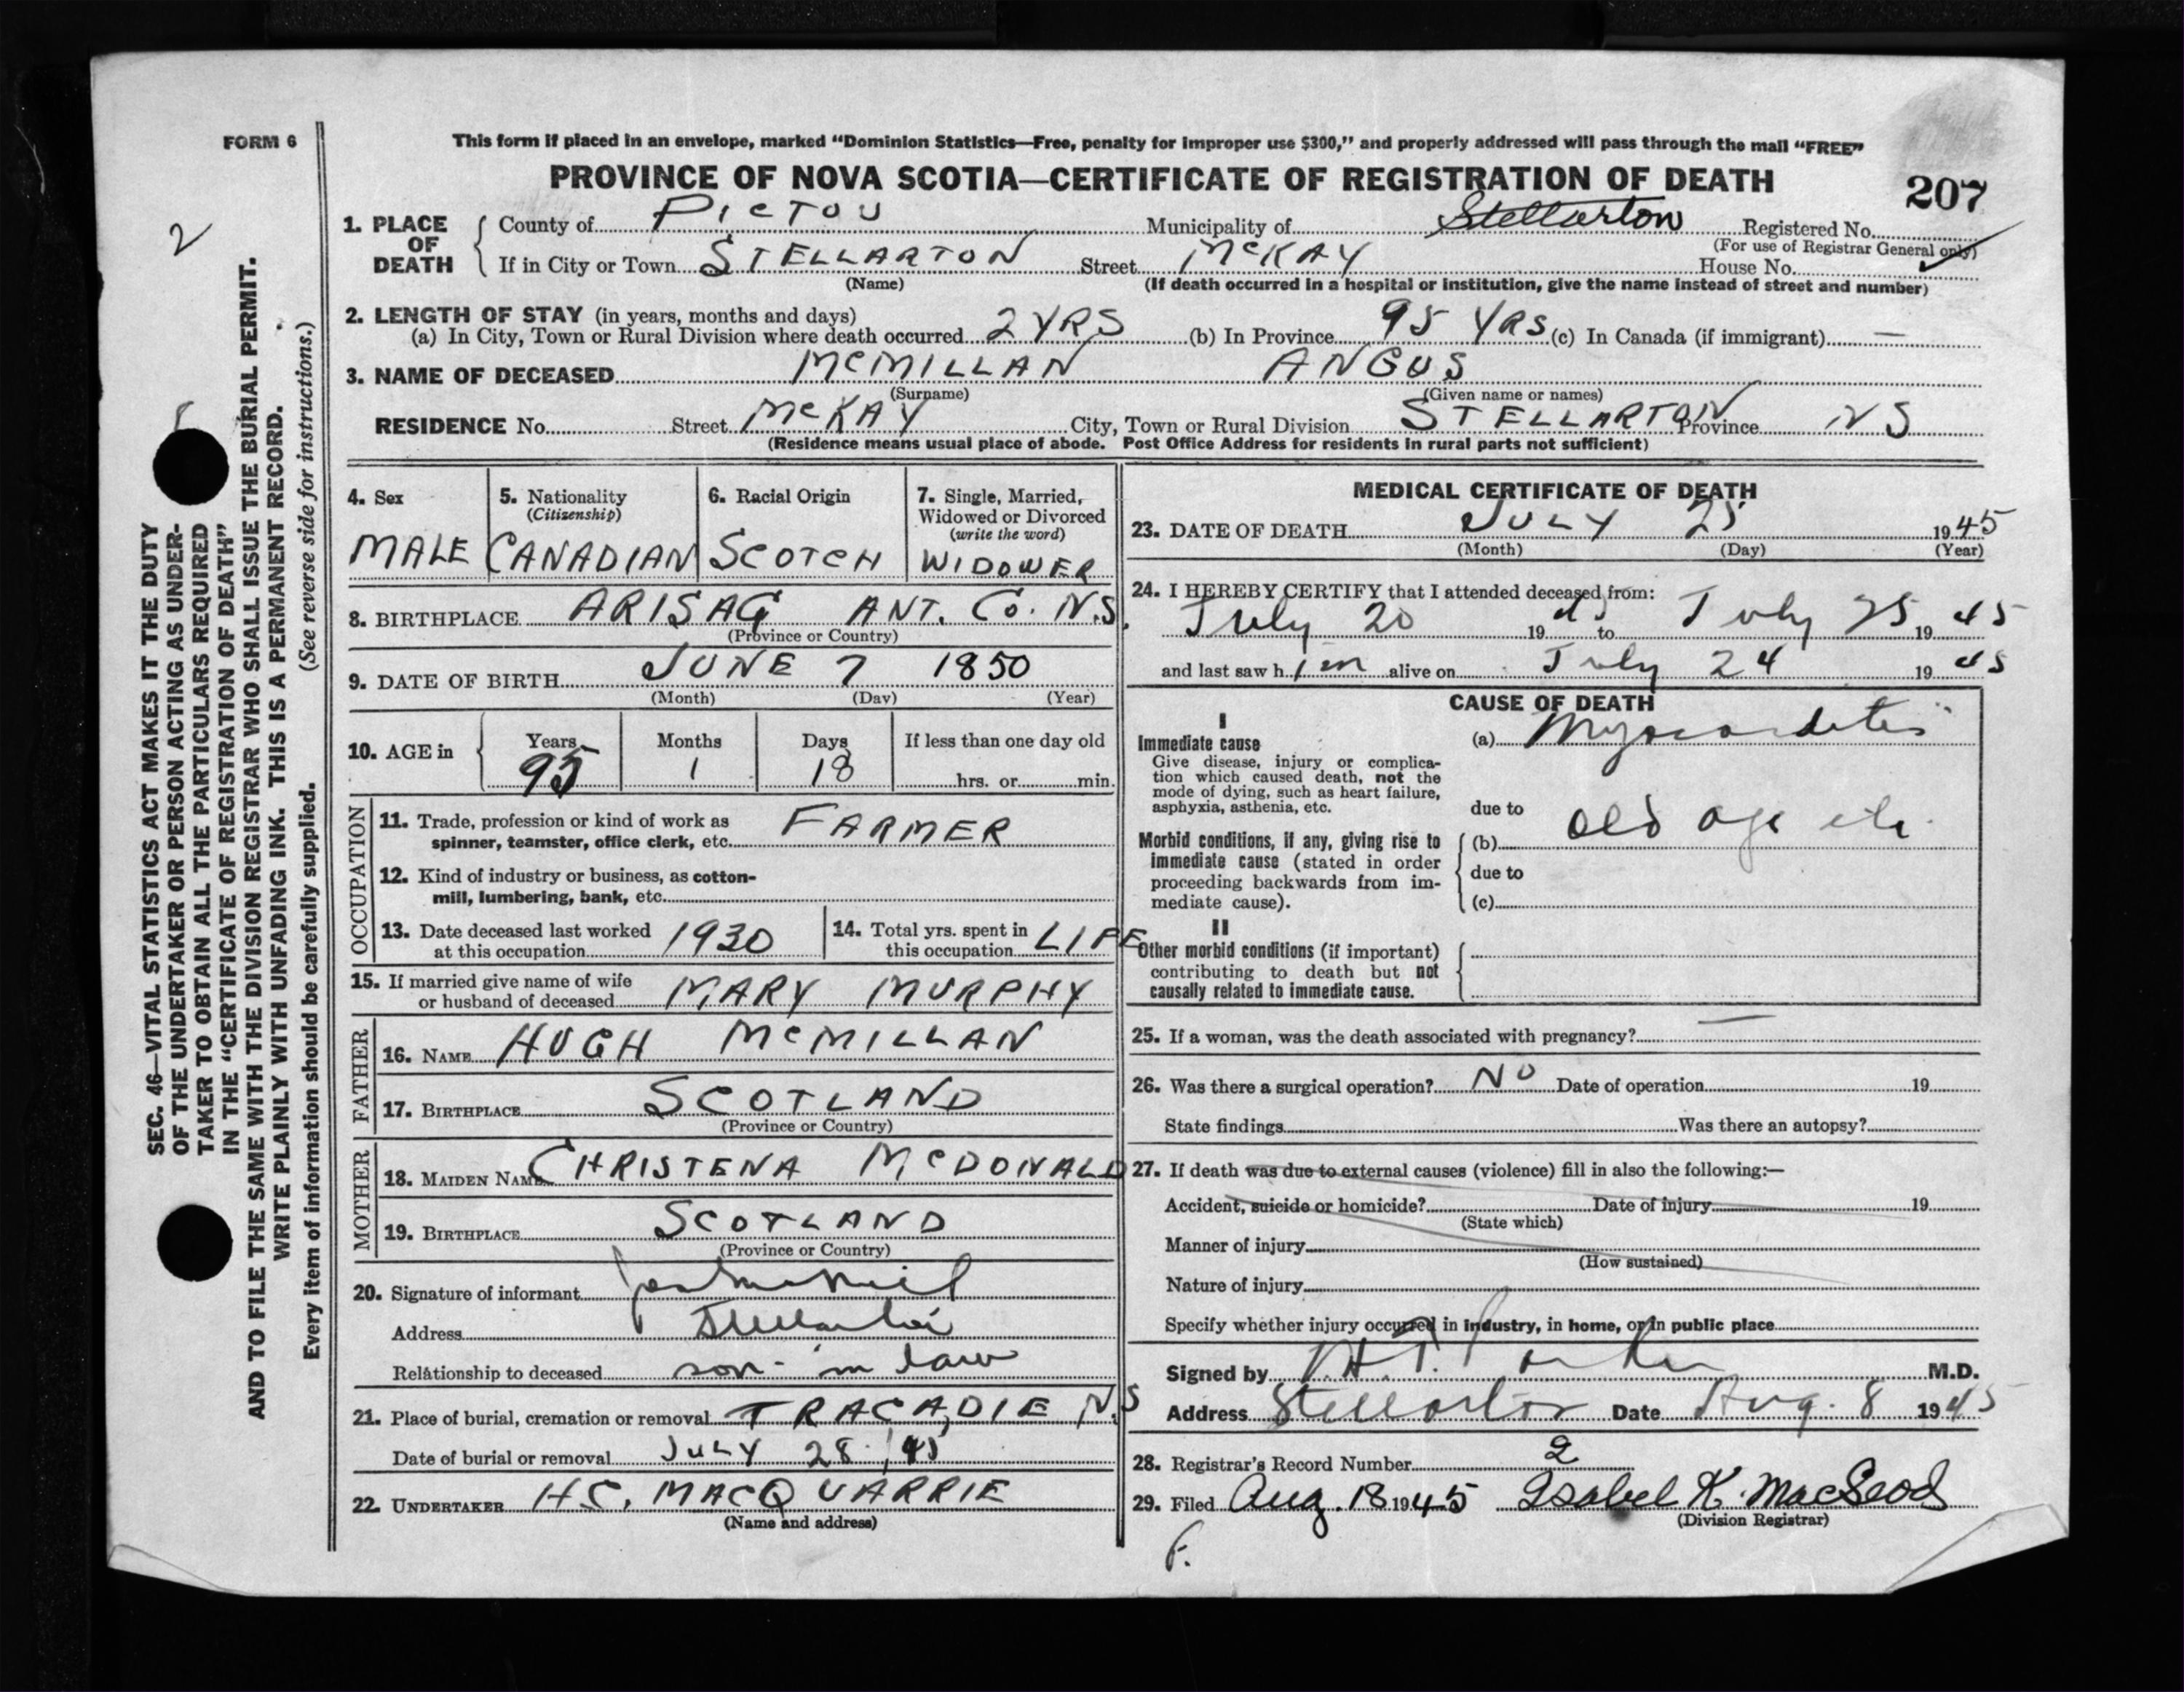 FORM 6
This form if placed in an envelope, marked "Dominion Statistics—Free, penalty for improper use $300," and properly addressed will pass through the mail "FREE"
PROVINCE OF NOVA SCOTIA—CERTIFICATE OF REGISTRATION OF DEATH
207
2
1. PLACE OF DEATH
County of PICTOU Municipality of Stellarton Registered No.
(For use of Registrar General only)
If in City or Town STELLARTON Street McKAY House No.
(Name) (If death occurred in a hospital or institution, give the name instead of street and number)
2. LENGTH OF STAY (in years, months and days)
(a) In City, Town or Rural Division where death occurred 2 YRS (b) In Province 95 YRS (c) In Canada (if immigrant) —
3. NAME OF DECEASED McMILLAN ANGUS
(Surname) (Given name or names)
RESIDENCE No. Street McKAY City, Town or Rural Division STELLARTON Province NS
(Residence means usual place of abode. Post Office Address for residents in rural parts not sufficient)
4. Sex
MALE
5. Nationality
(Citizenship)
CANADIAN
6. Racial Origin
SCOTCH
7. Single, Married,
Widowed or Divorced
(write the word)
WIDOWER
8. BIRTHPLACE ARISAG ANT. CO. N.S.
(Province or Country)
9. DATE OF BIRTH JUNE 7 1850
(Month) (Day) (Year)
10. AGE in
Years Months Days If less than one day old
95 1 18 hrs. or min.
OCCUPATION
11. Trade, profession or kind of work as
spinner, teamster, office clerk, etc. FARMER
12. Kind of industry or business, as cotton-
mill, lumbering, bank, etc.
13. Date deceased last worked
at this occupation 1930
14. Total yrs. spent in
this occupation LIFE
15. If married give name of wife
or husband of deceased MARY MURPHY
FATHER
16. NAME HUGH McMILLAN
17. BIRTHPLACE SCOTLAND
(Province or Country)
MOTHER
18. MAIDEN NAME CHRISTENA McDONALD
19. BIRTHPLACE SCOTLAND
(Province or Country)
20. Signature of informant
Address Stellarton
Relationship to deceased son-in law
21. Place of burial, cremation or removal TRACADIE N.S
Date of burial or removal JULY 28, 45
22. UNDERTAKER H.C. MACQUARRIE
(Name and address)
MEDICAL CERTIFICATE OF DEATH
23. DATE OF DEATH JULY 25 1945
(Month) (Day) (Year)
24. I HEREBY CERTIFY that I attended deceased from:
July 20 1945 to July 25 1945
and last saw him alive on July 24 1945
CAUSE OF DEATH
I
Immediate cause
Give disease, injury or complica-
tion which caused death, not the
mode of dying, such as heart failure,
asphyxia, asthenia, etc.
(a) Myocarditis
due to
Morbid conditions, if any, giving rise to
immediate cause (stated in order
proceeding backwards from im-
mediate cause).
(b) old age etc.
due to
(c)
II
Other morbid conditions (if important)
contributing to death but not
causally related to immediate cause.
25. If a woman, was the death associated with pregnancy? —
26. Was there a surgical operation? No Date of operation 19
State findings Was there an autopsy?
27. If death was due to external causes (violence) fill in also the following:—
Accident, suicide or homicide? Date of injury 19
(State which)
Manner of injury
(How sustained)
Nature of injury
Specify whether injury occurred in industry, in home, or in public place
Signed by M.D.
Address Stellarton Date Aug. 8 1945
28. Registrar's Record Number 2
29. Filed Aug. 18 1945 Isabel K. MacLeod
(Division Registrar)
SEC. 46—VITAL STATISTICS ACT MAKES IT THE DUTY
OF THE UNDERTAKER OR PERSON ACTING AS UNDER-
TAKER TO OBTAIN ALL THE PARTICULARS REQUIRED
IN THE "CERTIFICATE OF REGISTRATION OF DEATH"
AND TO FILE THE SAME WITH THE DIVISION REGISTRAR WHO SHALL ISSUE THE BURIAL PERMIT.
WRITE PLAINLY WITH UNFADING INK. THIS IS A PERMANENT RECORD.
Every item of information should be carefully supplied. (See reverse side for instructions.)